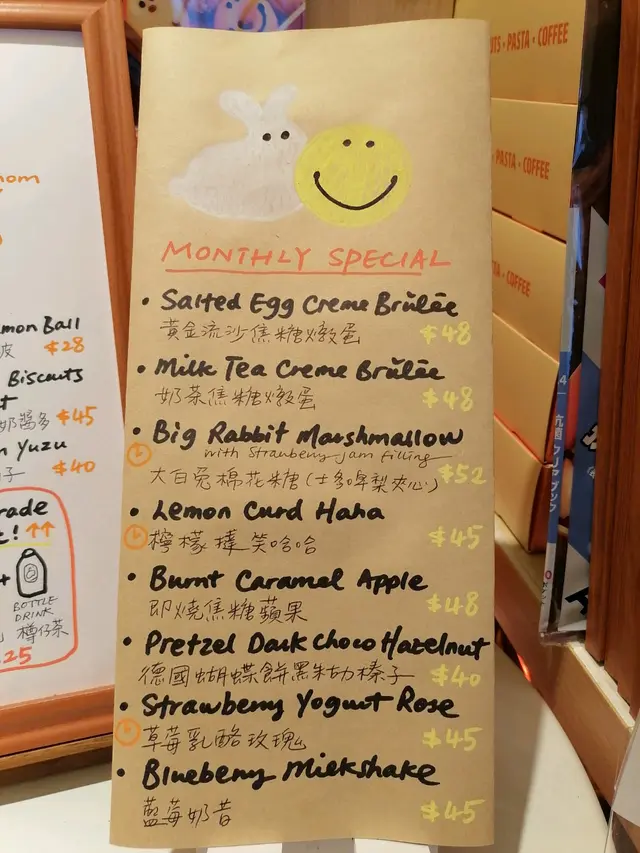 MONTHLY SPECIAL
• Salted Egg Creme Brûlée
黃金流沙焦糖燉蛋 $48
• Milk Tea Creme Brûlée
奶茶焦糖燉蛋 $48
• Big Rabbit Marshmallow
with Strawberry jam filling
大白兔棉花糖(士多啤梨夾心) $52
• Lemon Curd Haha
檸檬撻笑哈哈 $45
• Burnt Caramel Apple
即燒焦糖蘋果 $48
• Pretzel Dark Choco Hazelnut
德國蝴蝶餅黑朱古榛子 $40
• Strawberry Yogurt Rose
草莓乳酪玫瑰 $45
• Blueberry Milkshake
藍莓奶昔 $45
mon Ball
皮 $28
Biscuits
奶醬多 $45
Yuzu
子 $40
rade
! ↑↑
+
BOTTLE
DRINK
樽仔茶
25
TS • PASTA • COFFEE
PASTA • COFFEE
STA • COFFEE
抗菌クリアブック